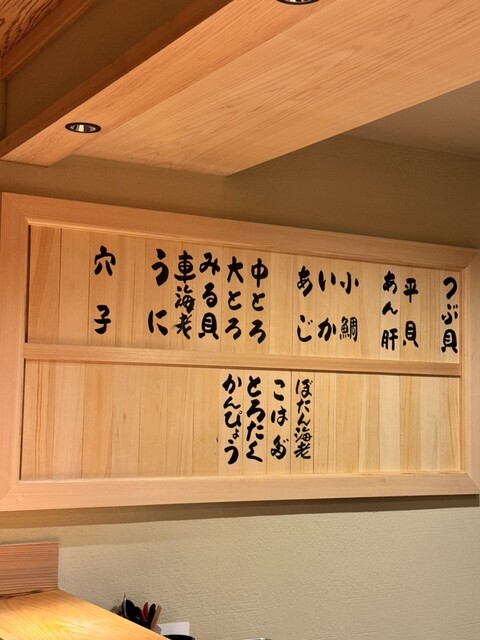 つぶ貝
平貝
あん肝
小鯛
いか
あじ
中とろ
大とろ
みる貝
車海老
うに
穴子
ぼたん海老
こはだ
とろたく
かんぴょう